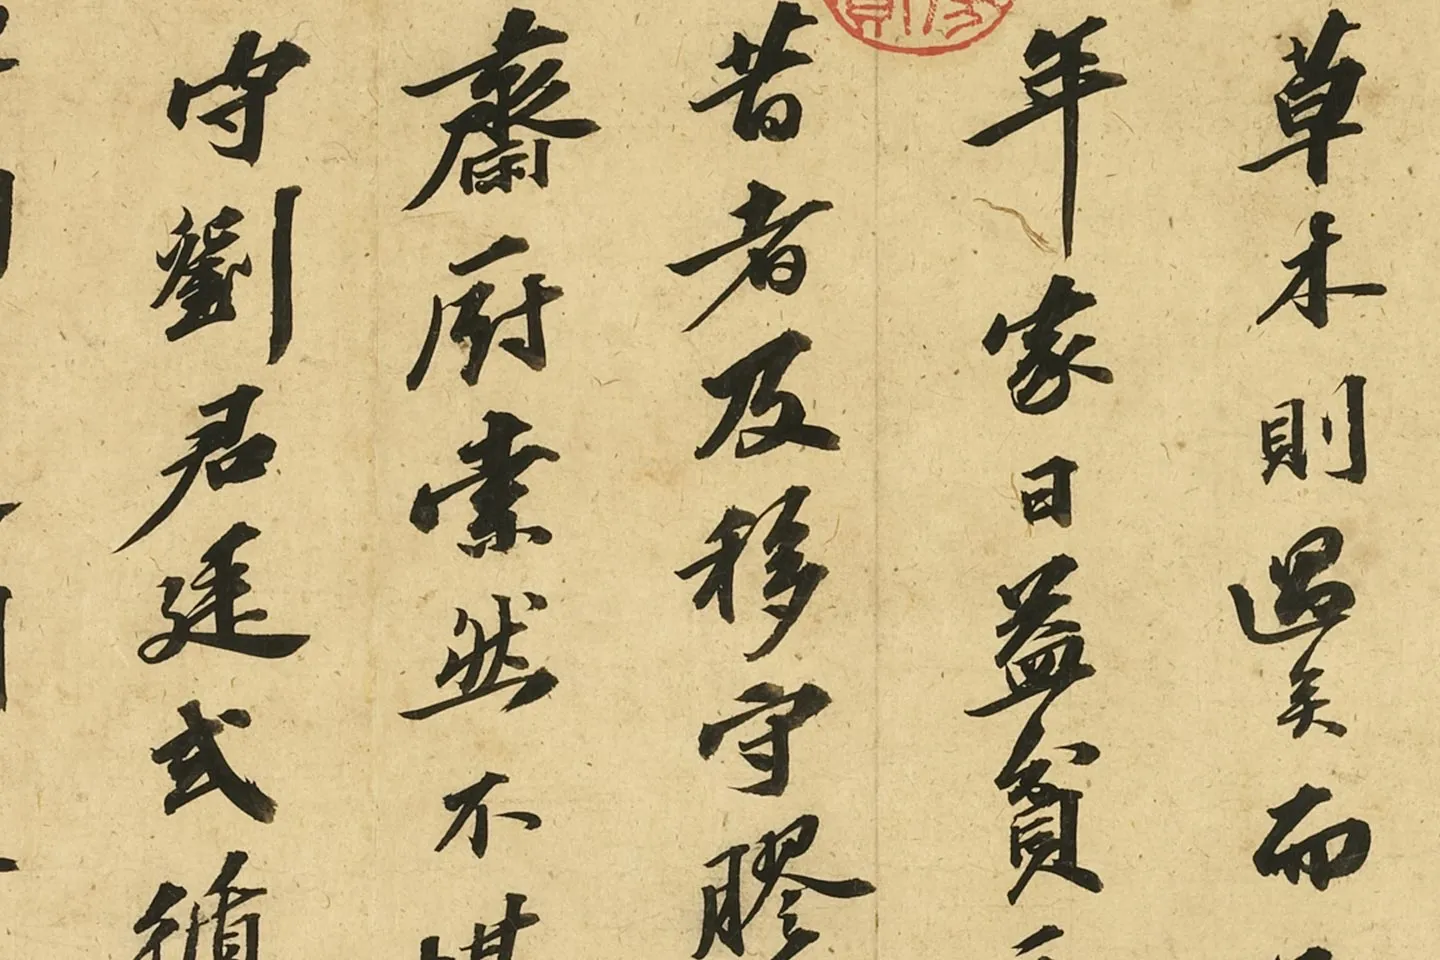 草木則過矣而
年家日益貧
昔者及移守膠
齋厨索然不堪
守劉君廷式循